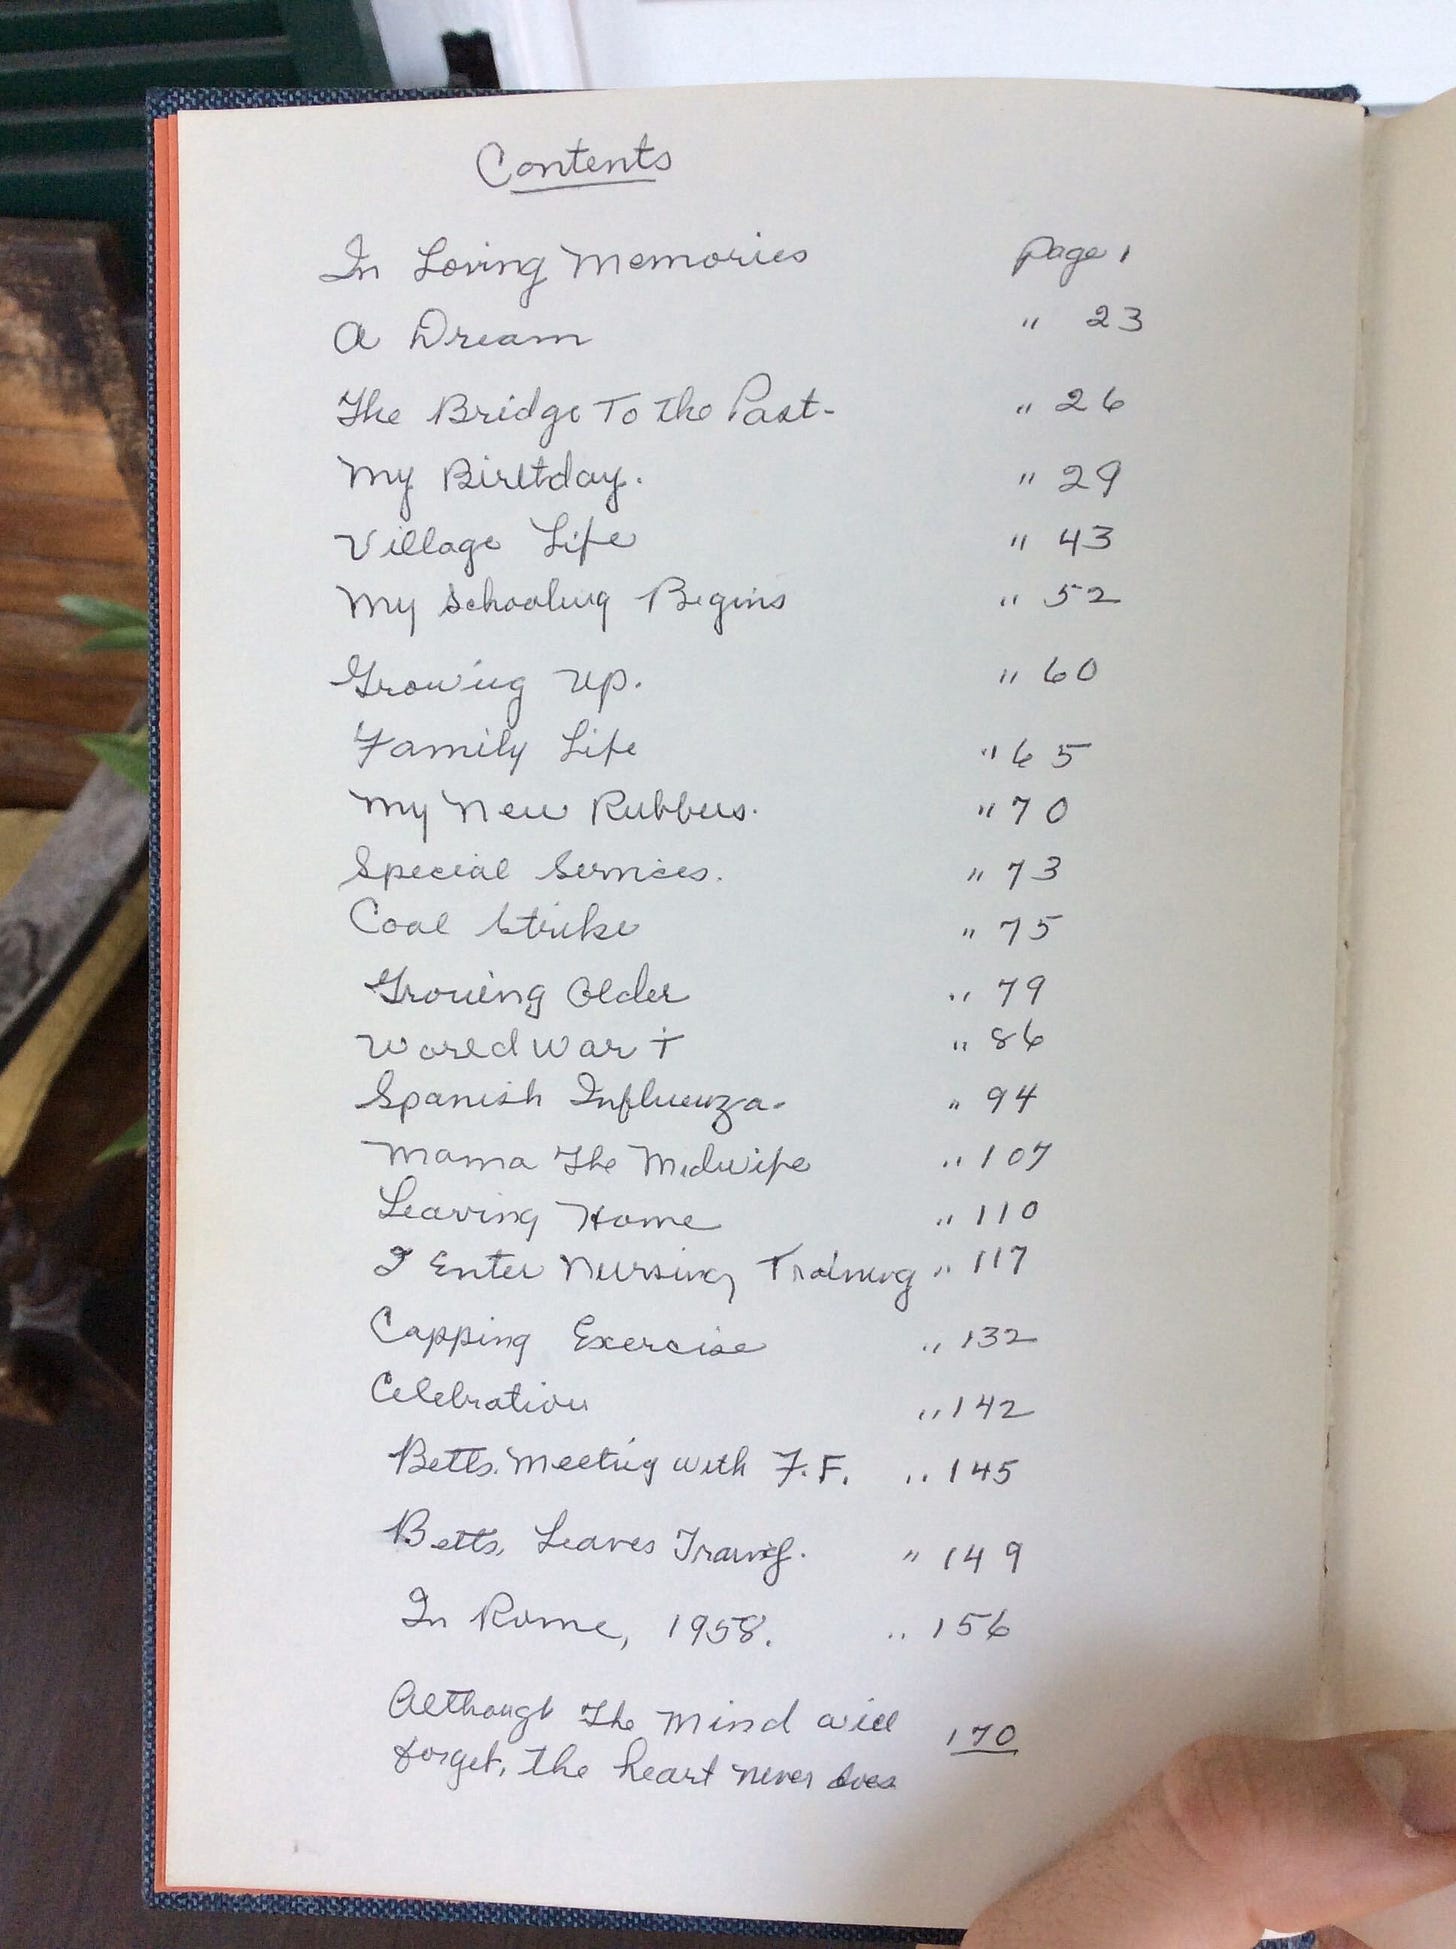 Contents
In Loving Memories page 1
A Dream " 23
The Bridge To the Past- " 26
My Birltday. " 29
Village Life " 43
My Schooling Begins " 52
Growing Up. " 60
Family Life " 65
My New Rubbers. " 70
Special Services. " 73
Coal Strike " 75
Growing Older " 79
World War I " 86
Spanish Influenza- " 94
Mama The Midwife " 107
Leaving Home " 110
I Enter Nursing Training " 117
Capping Exercise " 132
Celebration " 142
Betts. Meeting with F.F. " 145
Betts, Leaves Traing. " 149
In Rome, 1958. " 156
Although The Mind will 170
forget, the heart never does